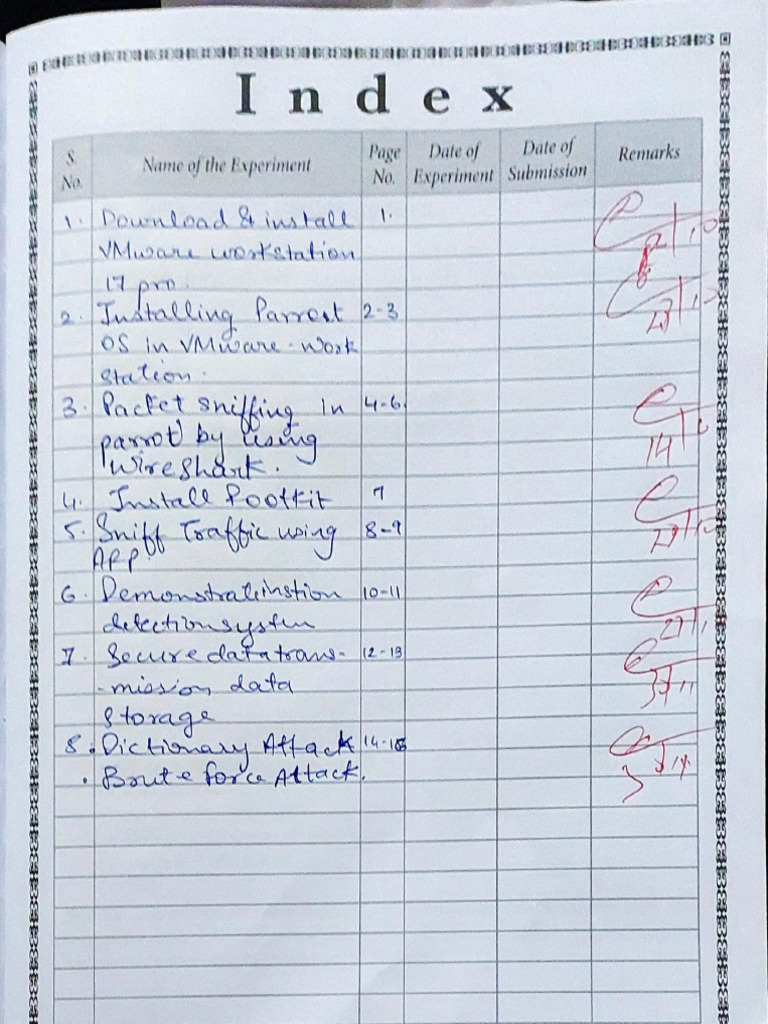 Index
S. No. Name of the Experiment Page No. Date of Experiment Date of Submission Remarks
1. Download & install 1.
VMware workstation
17 pro.
2. Installing Parrot 2-3
OS in VMware work
station.
3. Packet sniffing in 4-6.
parrot by using
Wireshark.
4. Install Rootkit 7
5. Sniff Traffic using 8-9
ARP.
6. 10-11
detection system
7. Secure data trans- 12-13
-mission data
storage
8. Dictionary Attack 14-16
. Brute force Attack.